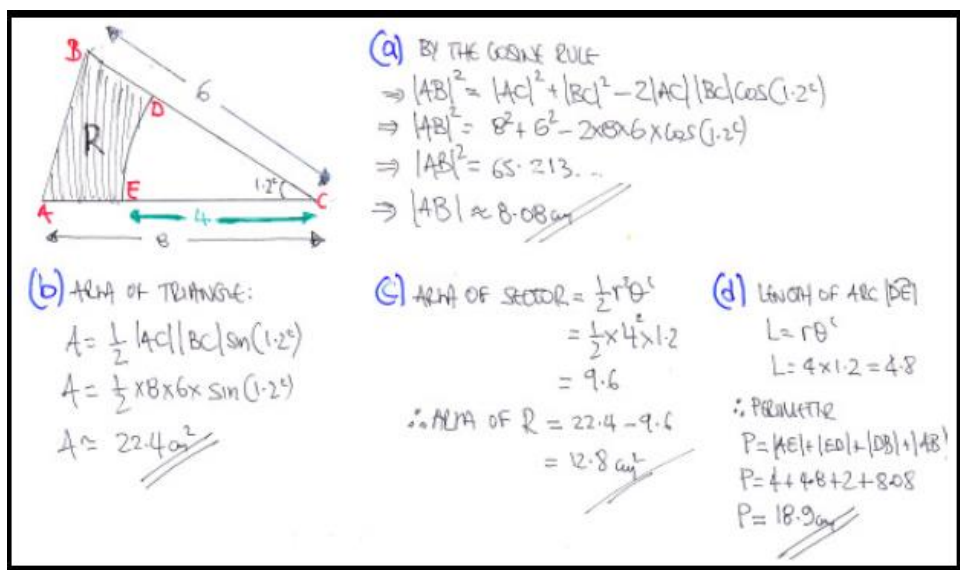 B
6
D
R
1.2ᶜ
A
E
C
4
8
(a) BY THE COSINE RULE
⇒ |AB|² = |AC|² + |BC|² - 2|AC||BC|cos(1.2ᶜ)
⇒ |AB|² = 8² + 6² - 2×8×6×cos(1.2ᶜ)
⇒ |AB|² = 65.213...
⇒ |AB| ≈ 8.08 cm
(b) AREA OF TRIANGLE:
A = ½ |AC||BC| sin(1.2ᶜ)
A = ½ ×8×6× sin(1.2ᶜ)
A ≈ 22.4 cm²
(c) AREA OF SECTOR = ½r²θᶜ
= ½×4²×1.2
= 9.6
∴ AREA OF R = 22.4 - 9.6
= 12.8 cm²
(d) LENGTH OF ARC |DE|
L = rθᶜ
L = 4×1.2 = 4.8
∴ PERIMETER
P = |AE| + |ED| + |DB| + |AB|
P = 4 + 4.8 + 2 + 8.08
P = 18.9 cm